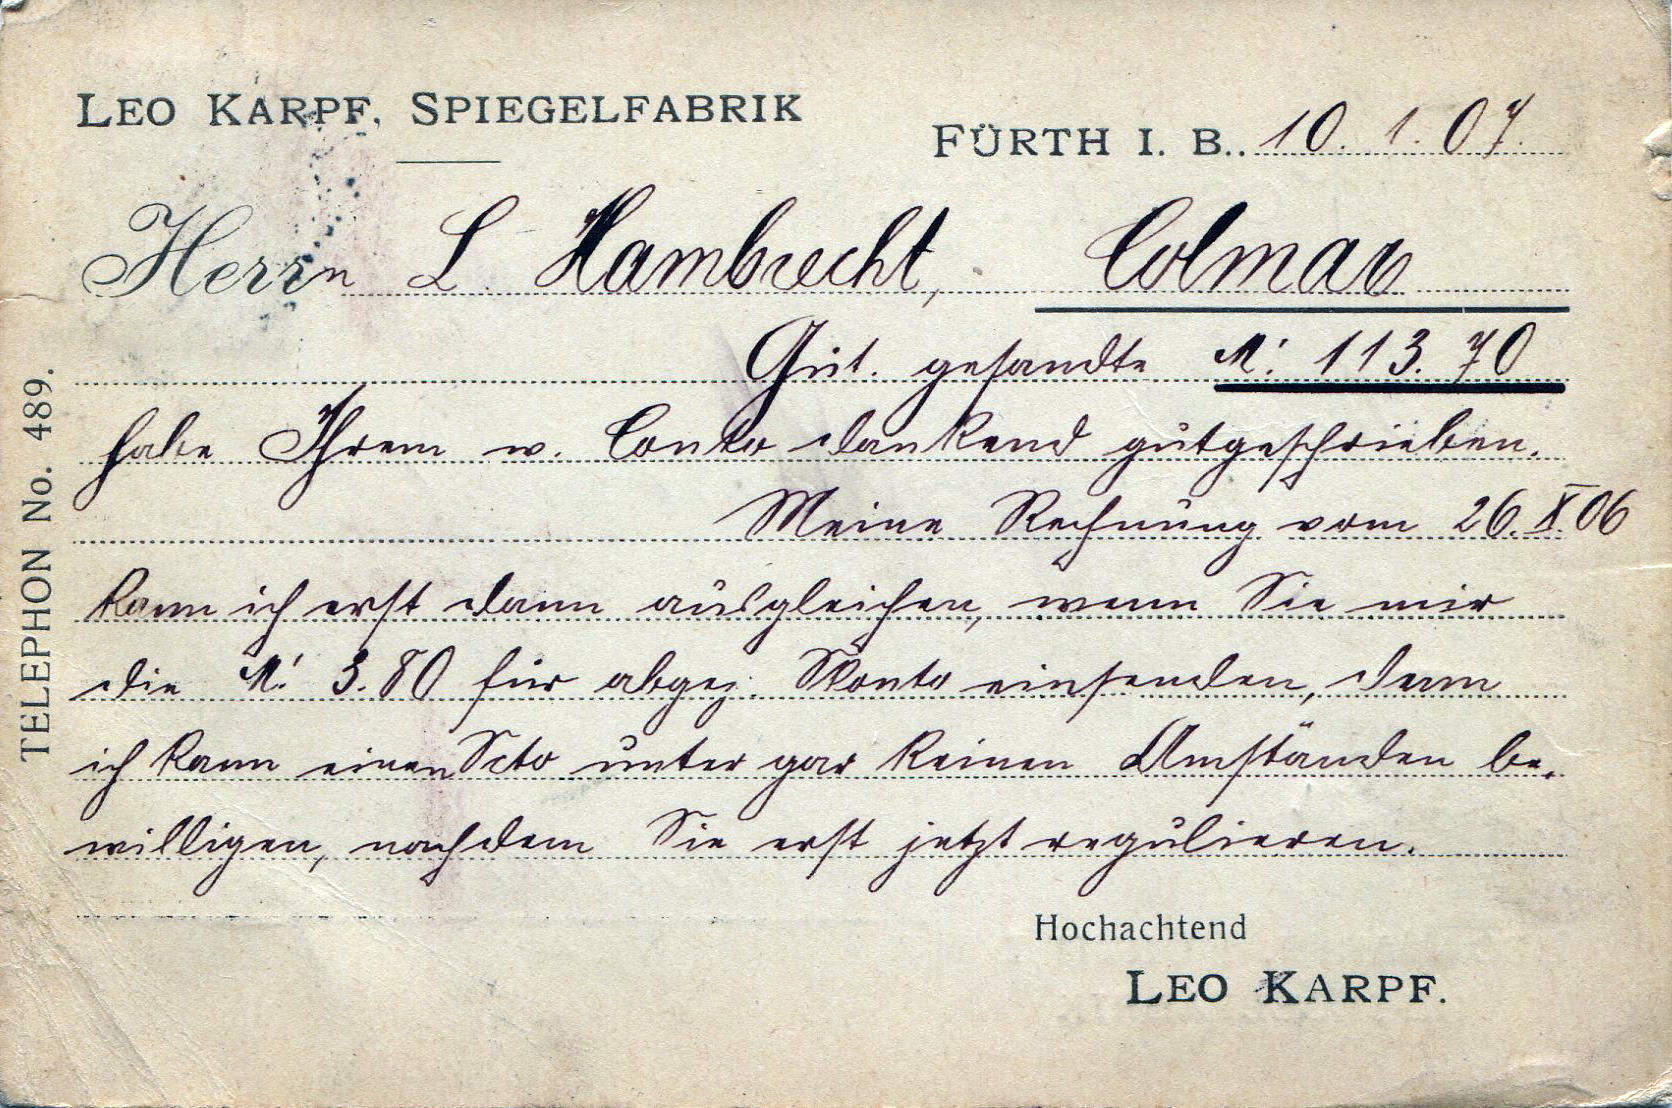 LEO KARPF, SPIEGELFABRIK
FÜRTH I. B.. 10. 1. 07.
Herrn L. Hambrecht, Colmar
Güt. gesandte M. 113.70
habe Ihrem w. Conto dankend gutgeschrieben.
Meine Rechnung vom 26. X. 06
kann ich erst dann ausgleichen, wenn Sie mir
die M. 3.80 für abgez. Skonto einsenden, denn
ich kann einen Scto unter gar keinen Umständen be-
willigen, nachdem Sie erst jetzt regulieren.
Hochachtend
LEO KARPF.
TELEPHON No. 489.